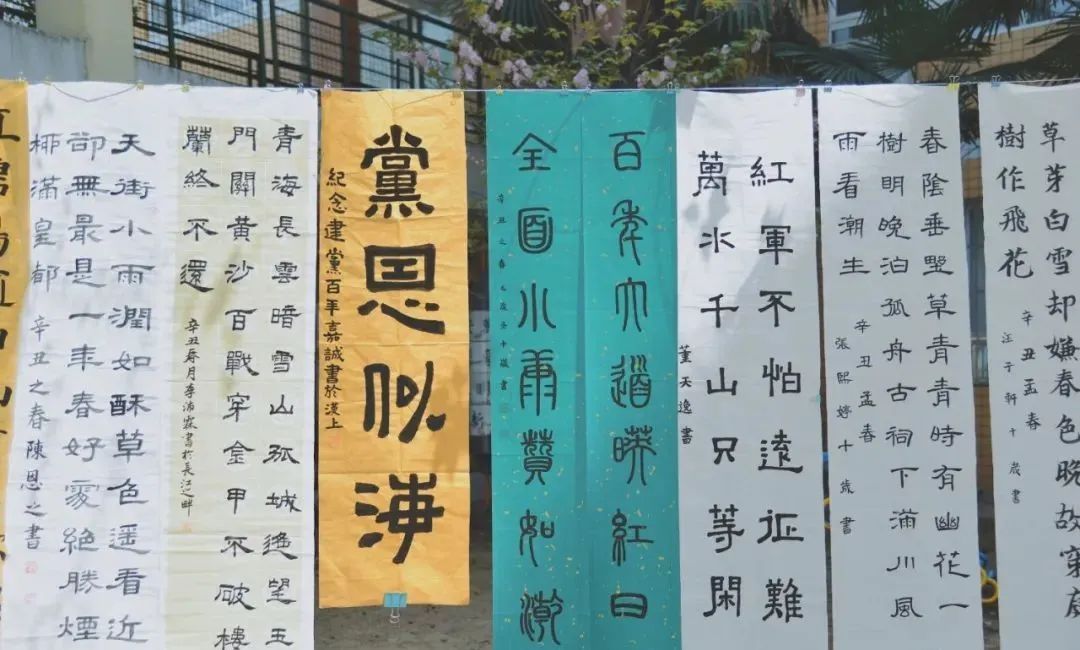 草芽白雪却嫌春色晚故穿庭
樹作飛花
辛丑孟春
汪子軒十歲書
春陰垂野草青青時有幽花一
樹明晚泊孤舟古祠下滿川風
雨看潮生
辛丑孟春
張熙婷十歲書
紅軍不怕遠征難
萬水千山只等閑
董天逸書
百年大道映紅日
全面小康贊如潮
辛丑之春
黨恩似海
紀念建黨百年嘉誠書於漢上
青海長雲暗雪山孤城遙望玉
門關黃沙百戰穿金甲不破樓
蘭終不還
辛丑春月李沛霖書於長江之畔
天街小雨潤如酥草色遥看近
卻無最是一年春好處絕勝煙
柳滿皇都
辛丑之春陳恩之書